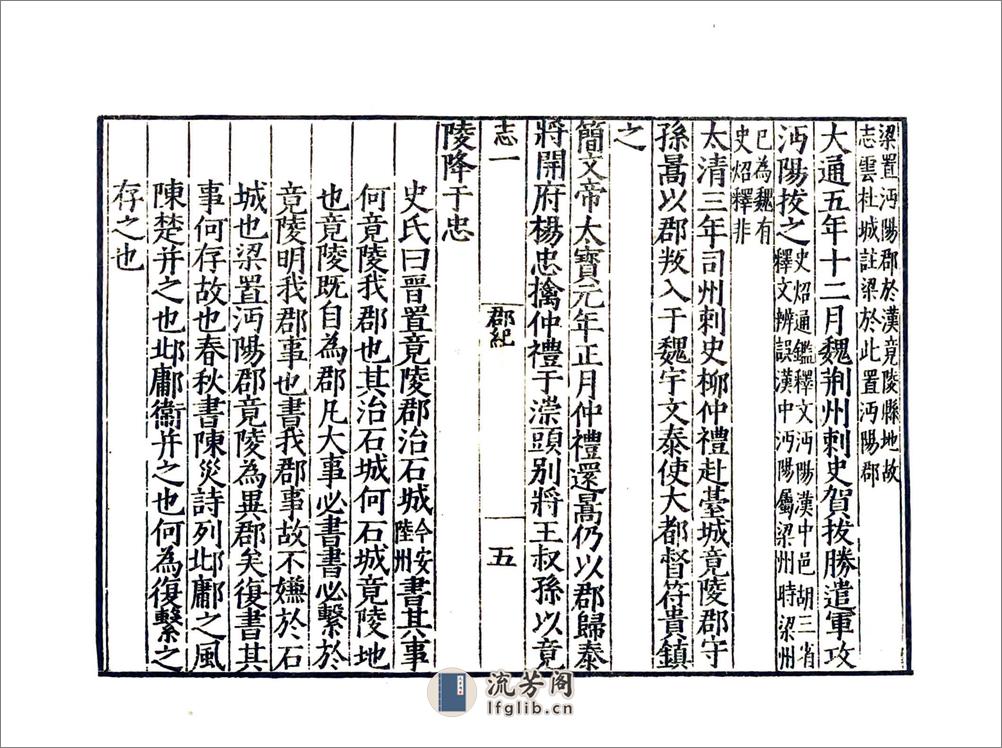 梁置沔陽郡於漢竟陵縣地故
志雲杜城註梁於此置沔陽郡
大通五年十二月魏荆州刺史賀拔勝遣軍攻
沔陽拔之史炤通鑑釋文沔陽漢中邑胡三省
釋文辨誤漢中沔陽屬梁州時梁州
已為魏有
史炤釋非
太清三年司州刺史柳仲禮赴臺城竟陵郡守
孫暠以郡叛入于魏宇文泰使大都督符貴鎮
之
簡文帝太寶元年正月仲禮還暠仍以郡歸泰
將開府楊忠擒仲禮于漴頭别將王叔孫以竟
志一
郡紀
五
陵降于忠
史氏曰晉置竟陵郡治石城今安
陸州書其事
何竟陵我郡也其治石城何石城竟陵地
也竟陵既自為郡凡大事必書書必繫於
竟陵明我郡事也書我郡事故不嫌於石
城也梁置沔陽郡竟陵為異郡矣復書其
事何存故也春秋書陳災詩列邶鄘之風
陳楚并之也邶鄘衞并之也何為復繫之
存之也
流芳阁
lfglib.cn